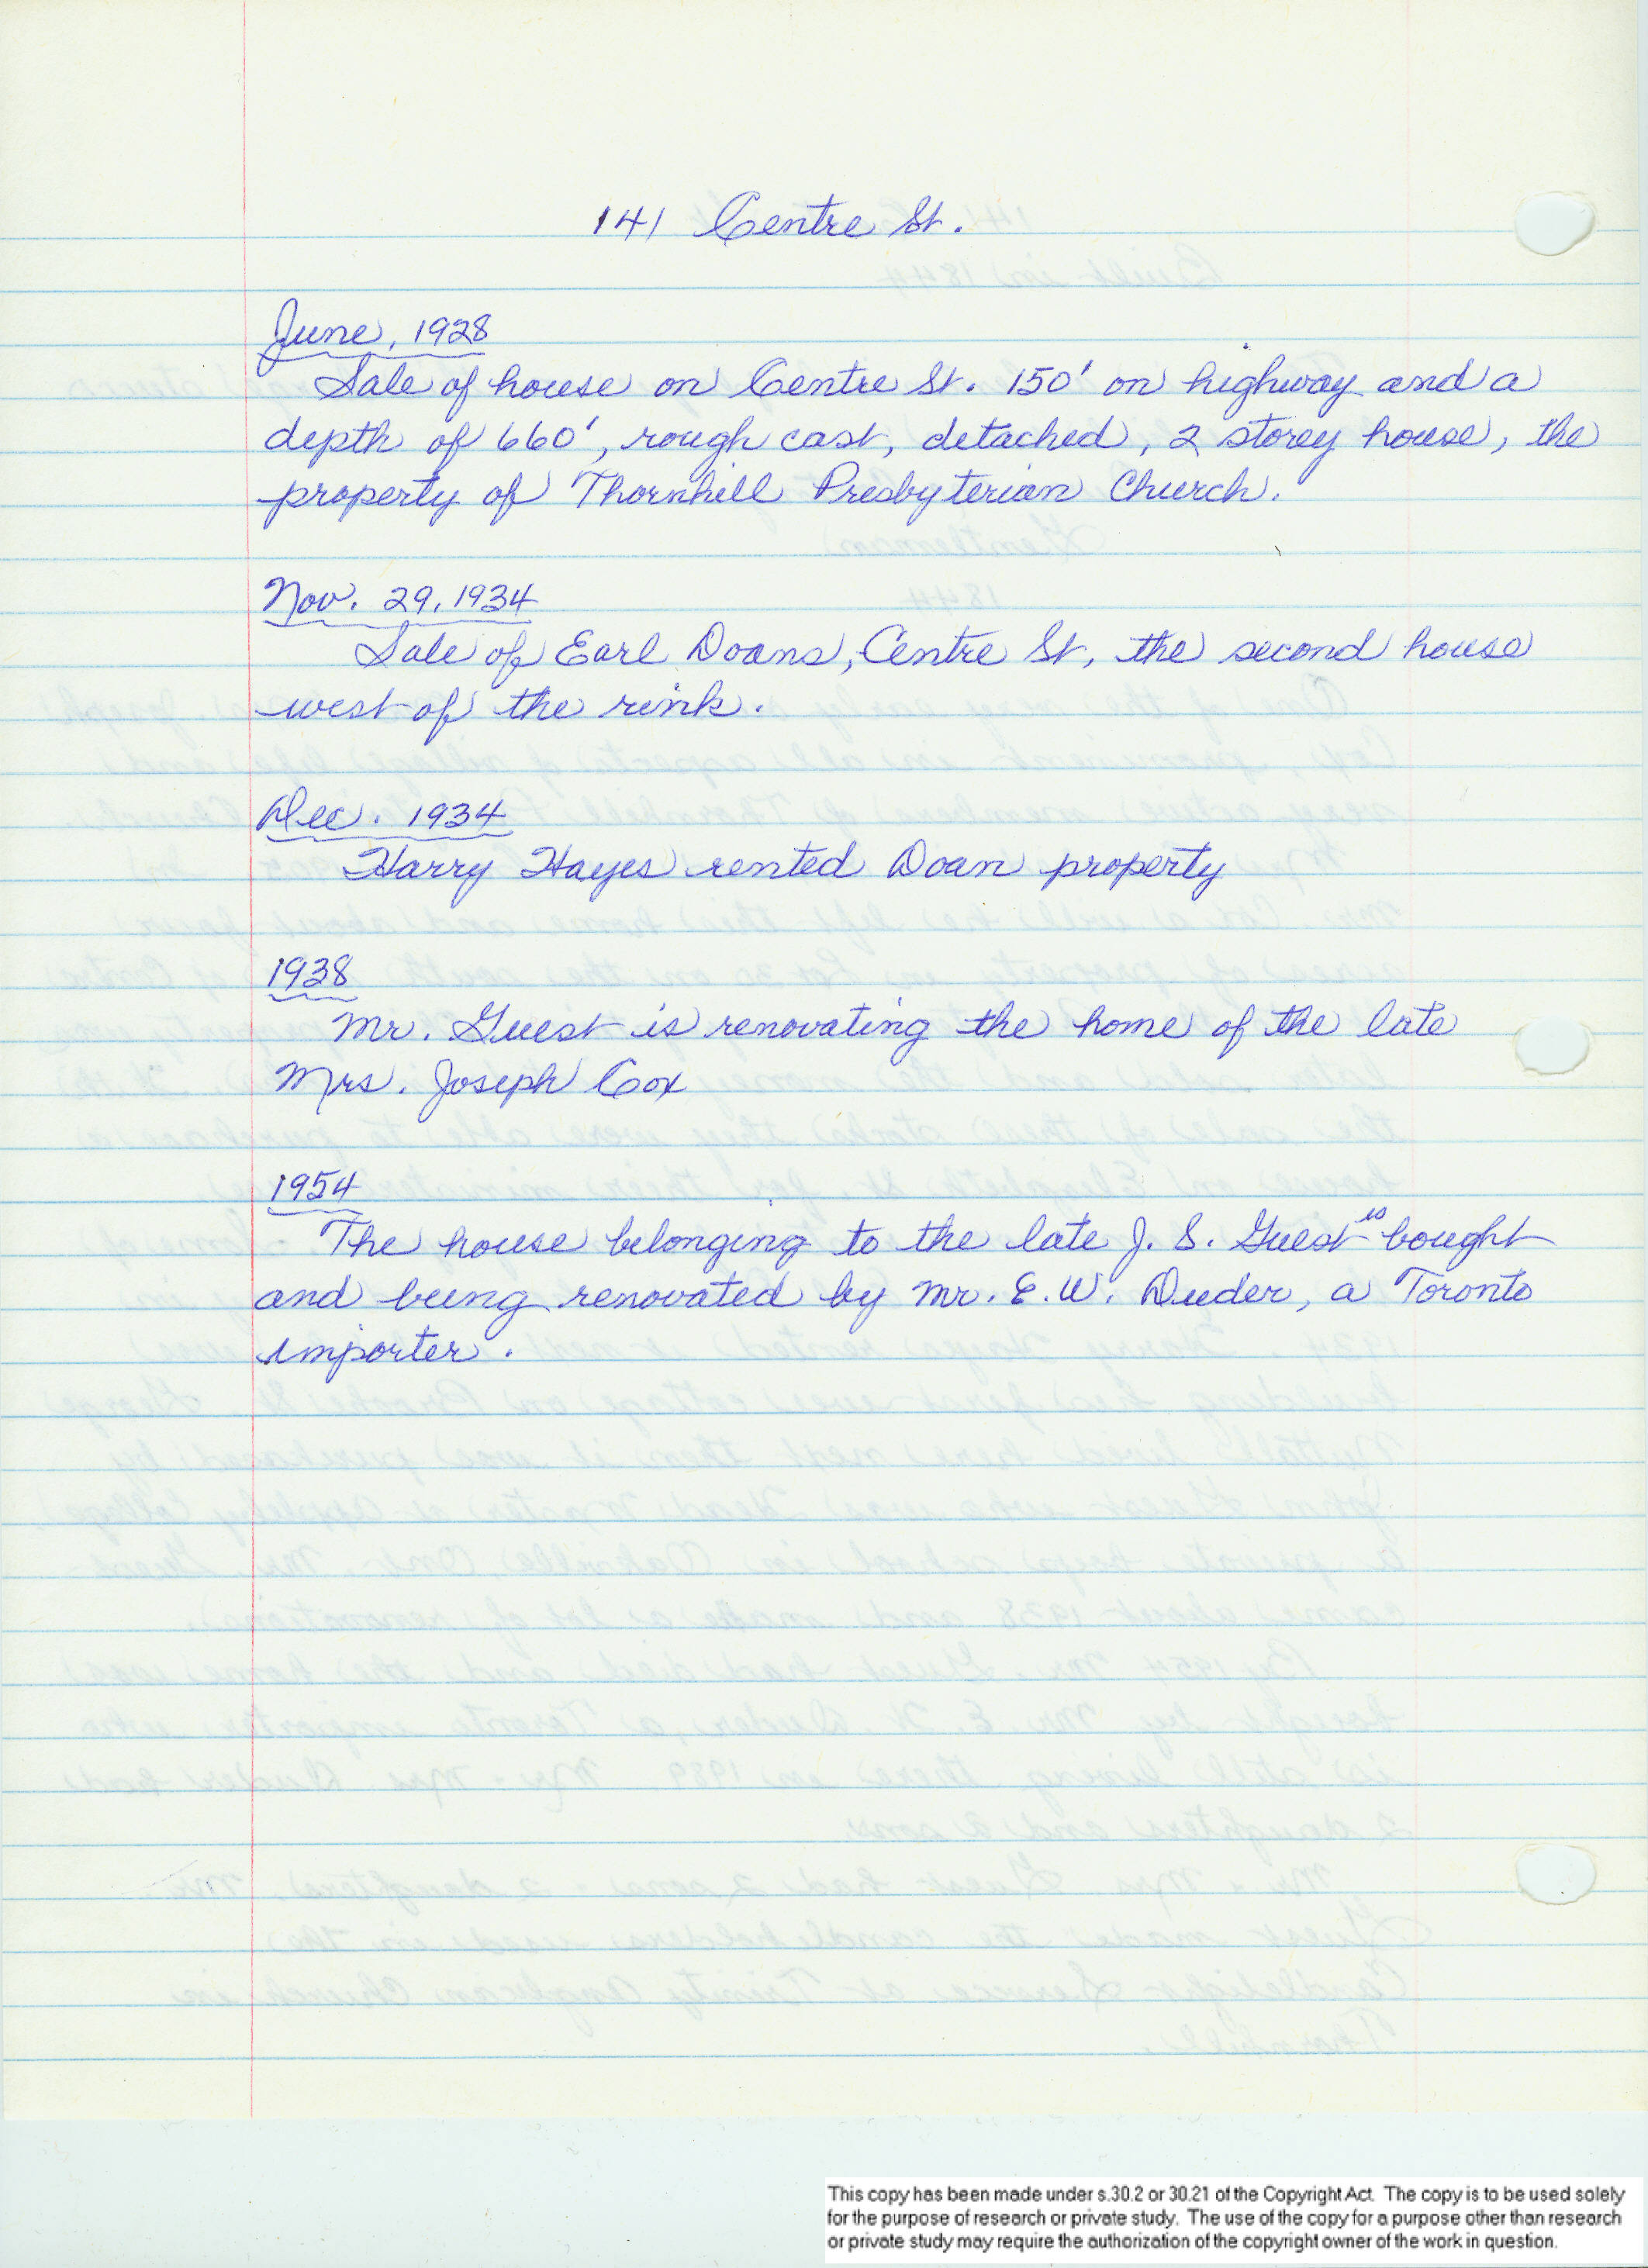 141 Centre St.
June, 1928
Sale of house on Centre St. 150' on highway and a
depth of 660', rough cast, detached, 2 storey house, the
property of Thornhill Presbyterian Church.
Nov. 29, 1934
Sale of Earl Doans, Centre St, the second house
west of the rink.
Dec. 1934
Harry Hayes rented Doan property
1938
Mr. Guest is renovating the home of the late
Mrs. Joseph Cox
1954
The house belonging to the late J. S. Guest is bought
and being renovated by Mr. E. W. Duder, a Toronto
importer.
This copy has been made under s.30.2 or 30.21 of the Copyright Act. The copy is to be used solely
for the purpose of research or private study. The use of the copy for a purpose other than research
or private study may require the authorization of the copyright owner of the work in question.